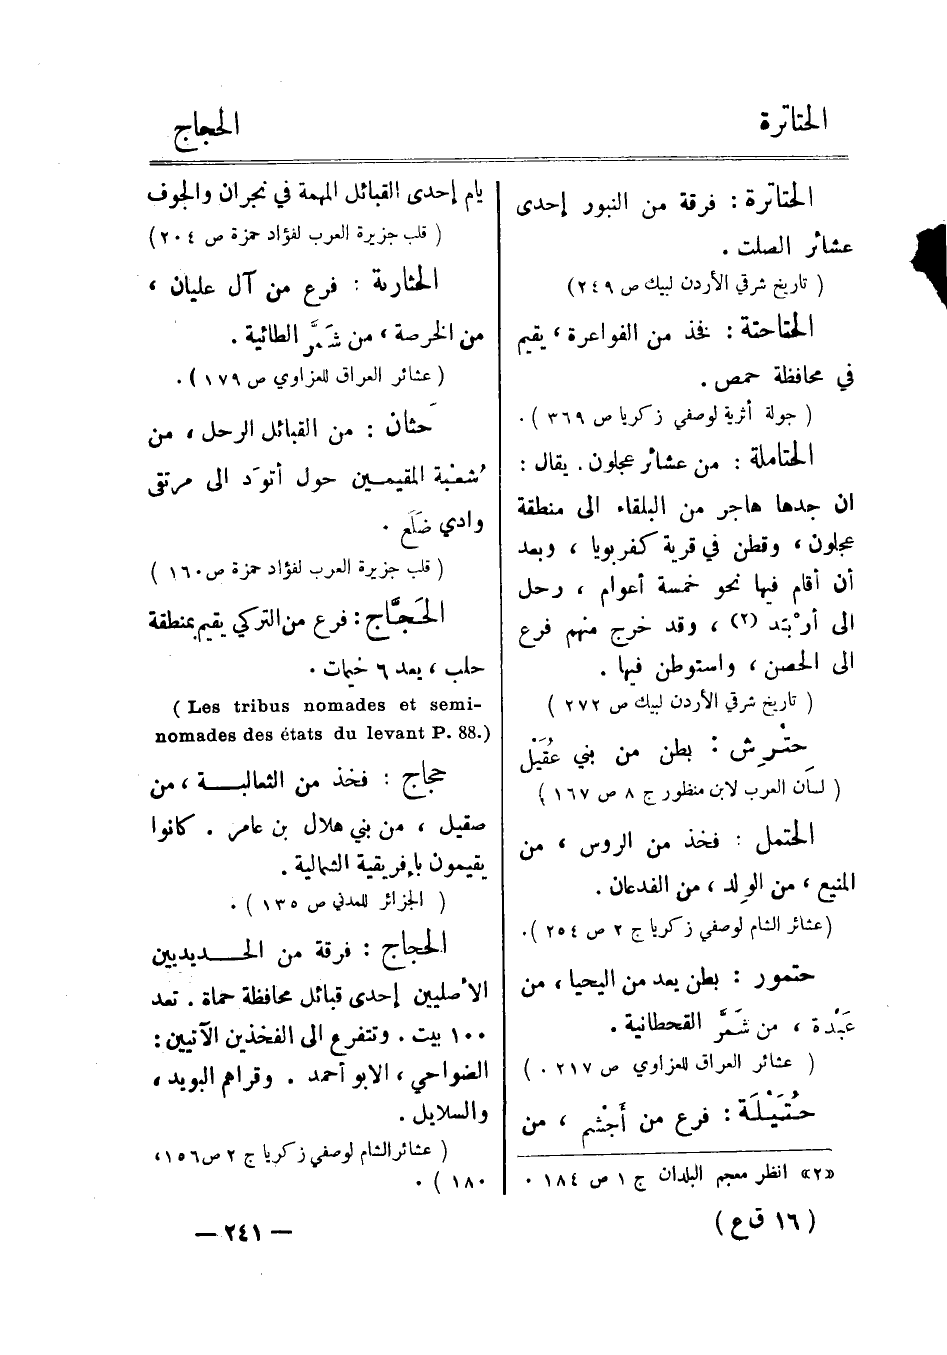 الحتاترة
الحجاج
الحتاترة : فرقة من النبور إحدى
عشائر الصلت .
( تاريخ شرقي الأردن لبيك ص ٢٤٩)
الحتاحتة : فخذ من الفواعرة ، يقيم
في محافظة حمص .
( جولة أثرية لوصفي زكريا ص ٣٦٩ ) .
الحتاملة : من عشائر عجلون . يقال :
ان جدها هاجر من البلقاء الى منطقة
عجلون ، وقطن في قرية كفربويا ، وبعد
أن أقام فيها نحو خمسة أعوام ، رحل
الى أرْبَد (٢) ، وقد خرج منهم فرع
الى الحصن ، واستوطن فيها .
( تاريخ شرقي الأردن لبيك ص ٢٧٢ )
حِتْرِش : بطن من بني عُقَيْل
( لسان العرب لابن منظور ج ٨ ص ١٦٧ )
الحتمل : فخذ من الروس ، من
المنيع ، من الولد ، من الفدعان .
(عشائر الشام لوصفي زكريا ج ٢ ص ٢٥٤ ).
حتمور : بطن يعد من اليحيا ، من
عَبْدة ، من شَمَّر القحطانية .
( عشائر العراق للعزاوي ص ٢١٧ . )
حُتَيْلَة : فرع من أَجْشم ، من
«٢» انظر معجم البلدان ج ١ ص ١٨٤ .
( ١٦ ق ع )
يام إحدى القبائل المهمة في نجران والجوف
( قلب جزيرة العرب لفؤاد حمزة ص ٢٠٤)
الحثاربة : فرع من آل عليان ،
من الخرصة ، من شَمَّر الطائية .
( عشائر العراق للعزاوي ص ١٧٩ ) .
حَثان : من القبائل الرحل ، من
شعْبة المقيمين حول أتوَد الى مرتقى
وادي ضَلَع .
( قلب جزيرة العرب لفؤاد حمزة ص ١٦٠ )
الحَجَّاج : فرع من التركي يقيم بمنطقة
حلب ، يعد ٦ خيمات .
( Les tribus nomades et semi-
nomades des états du levant P. 88.)
حجاج : فخذ من الثعالبة ، من
صقيل ، من بني هلال بن عامر . كانوا
يقيمون بإفريقية الشمالية .
( الجزائر للمدني ص ١٣٥ ) .
الحجاج : فرقة من الحديديين
الأصليين إحدى قبائل محافظة حماة . تعد
١٠٠ بيت . وتتفرع الى الفخذين الآتيين :
الضواحي ، الابو أحمد . وقراهم البويد ،
والسلايل .
( عشائر الشام لوصفي زكريا ج ٢ ص ١٥٦ ،
١٨٠ ) .
— ٢٤١ —